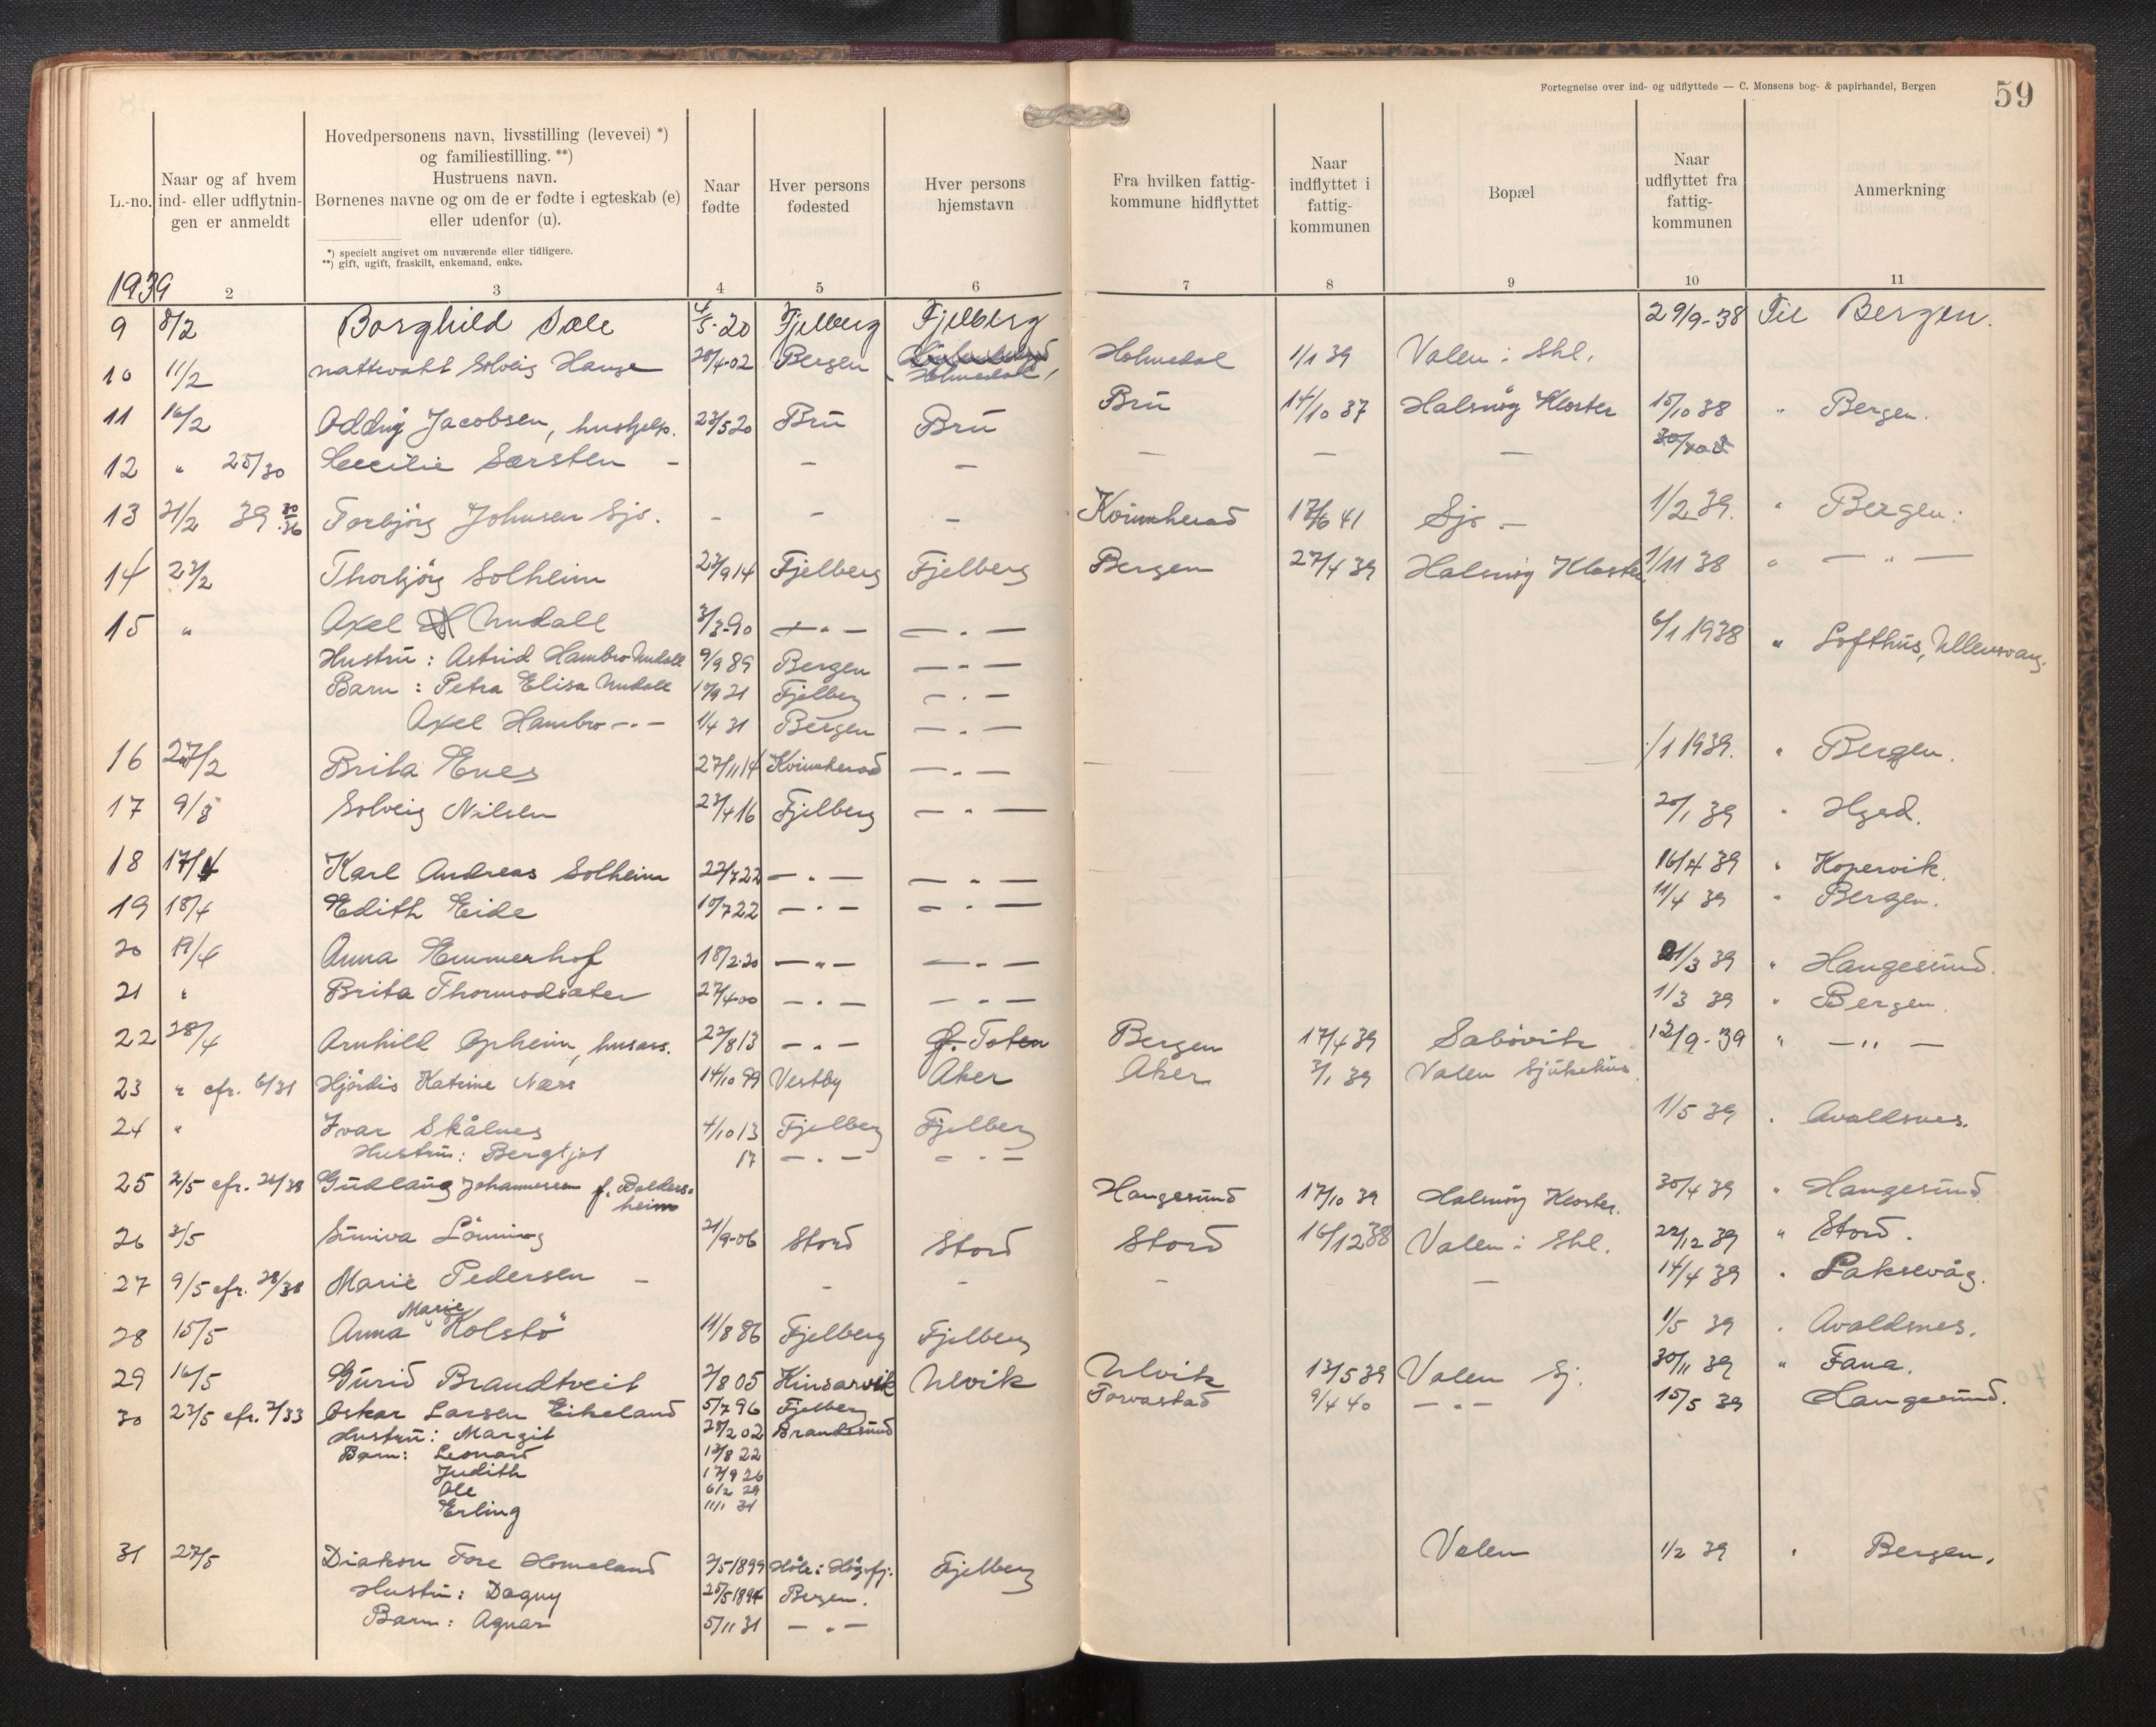 Fortegnelse over ind- og udflyttede — C. Monsens bog- & papirhandel, Bergen
59
L.-no.
Naar og af hvem ind- eller udflytningen er anmeldt
Hovedpersonens navn, livsstilling (levevei) *)
og familiestilling. **)
Hustruens navn.
Børnenes navne og om de er fødte i egteskab (e)
eller udenfor (u).
*) specielt angivet om nuværende eller tidligere.
**) gift, ugift, fraskilt, enkemand, enke.
Naar fødte
Hver persons fødested
Hver persons hjemstavn
Fra hvilken fattigkommune hidflyttet
Naar indflyttet i fattigkommunen
Bopæl
Naar udflyttet fra fattigkommunen
Anmerkning
1939 2 3 4 5 6 7 8 9 10 11
9 8/2 Borghild Sæle 4/5-20 Fjelberg Fjelberg 29/9-38 Til Bergen.
10 11/2 nattevakt Solveig Hauge 28/4-02 Bergen Holmedal Holmedal 1/1 39 Valen i Shl.
11 16/2 Oddny Jacobsen, hushjelp. 23/5 20 Bru Bru Bru 14/10 37 Halsnøy Kloster 15/10 38 " Bergen.
12 " 25/30 Cecilie Sørsten - - - - - -
13 21/2 39 30/36 Torbjörg Johnsen Sjo. - - - Kvinnherad 17/6 41 Sjo - 1/2 39. " Bergen.
14 23/2 Thorbjörg Solheim 23/9 14 Fjelberg Fjelberg Bergen 27/4 39 Halsnøy Kloster 1/11 38 " — " —
15 " Axel Undall 3/3-90 — " — — " — 6/1 1938 " Lofthus, Ullensvang.
Hustru: Astrid Hambro Undall 9/9 89 Bergen — " —
Barn: Petra Elisa Undall 17/9 21 Fjelberg — " —
Axel Hambro — " — 1/4 31 Bergen — " —
16 27/2 Brita Enes 27/11 14 Kvinnherad — " — /1 1939. " Bergen.
17 9/3 Solveig Nilsen 23/4 16 Fjelberg — " — 20/1 39 " Hgsd.
18 17/4 Karl Andreas Solheim 22/7 22 — " — — " — 16/4 39 " Kopervik.
19 18/4 Edith Eide 10/7 22 — " — — " — 11/4 39 " Bergen.
20 19/4 Anna Emmerhof 18/2-20 — " — — " — 21/3 39 " Haugesund.
21 " Brita Thormodsæter 27/4-00 — " — — " — 1/3 39 " Bergen
22 28/4 Arnhild Opheim, husass. 22/8 13 — " — Ø. Toten Bergen 17/4 39 Sæbövik 12/9-39 " — " —
23 " cfr. 6/31 Hjördis Katrine Næss 14/10 99 Vestby Aker Aker 3/1 39 Valen Sjukehus
24 " Ivar Skålnes 4/10 13 Fjelberg Fjelberg 1/5 39 " Avaldsnes.
Hustru: Bergljot 17 — " — — " —
25 2/5 cfr. 26/38 Gudlaug Johannessen f. Baldersheim Haugesund 17/10 39 Halsnøy Kloster. 30/4 39 " Haugesund
26 3/5 Sunniva Lönning 21/9-06 Stord Stord Stord 16/12 38 Valen i Shl. 22/12 39 " Stord.
27 9/5 cfr. 28/38 Marie Pedersen - - - - - 14/4 39 " Laksevåg.
28 15/5 Anna Marie Kolstö 11/8 86 Fjelberg Fjelberg 1/5 39 " Avaldsnes.
29 16/5 Gurid Brandtveit 2/8 05 Kinsarvik Ulvik Ulvik 13/5 39 Valen Sj. 30/11 39 " Fana.
30 23/5 cfr. 2/33 Oskar Larsen Eikeland 5/7 96 Fjelberg Torvastad 9/4 40 — " — 15/5 39 Haugesund.
Hustru: Margit 28/2 02 Brandesund
Barn: Leonard 13/8 22
Judith 17/9 26
Ole 6/2 29
Erling 11/1 31
31 27/5 Diakon Tore Homeland 3/5 1899 Höle i Högsfj. Fjelberg Valen 1/2 39 " Bergen.
Hustru: Dagny 25/5 1894 Bergen.
Barn: Agnar 5/11 31 — " —